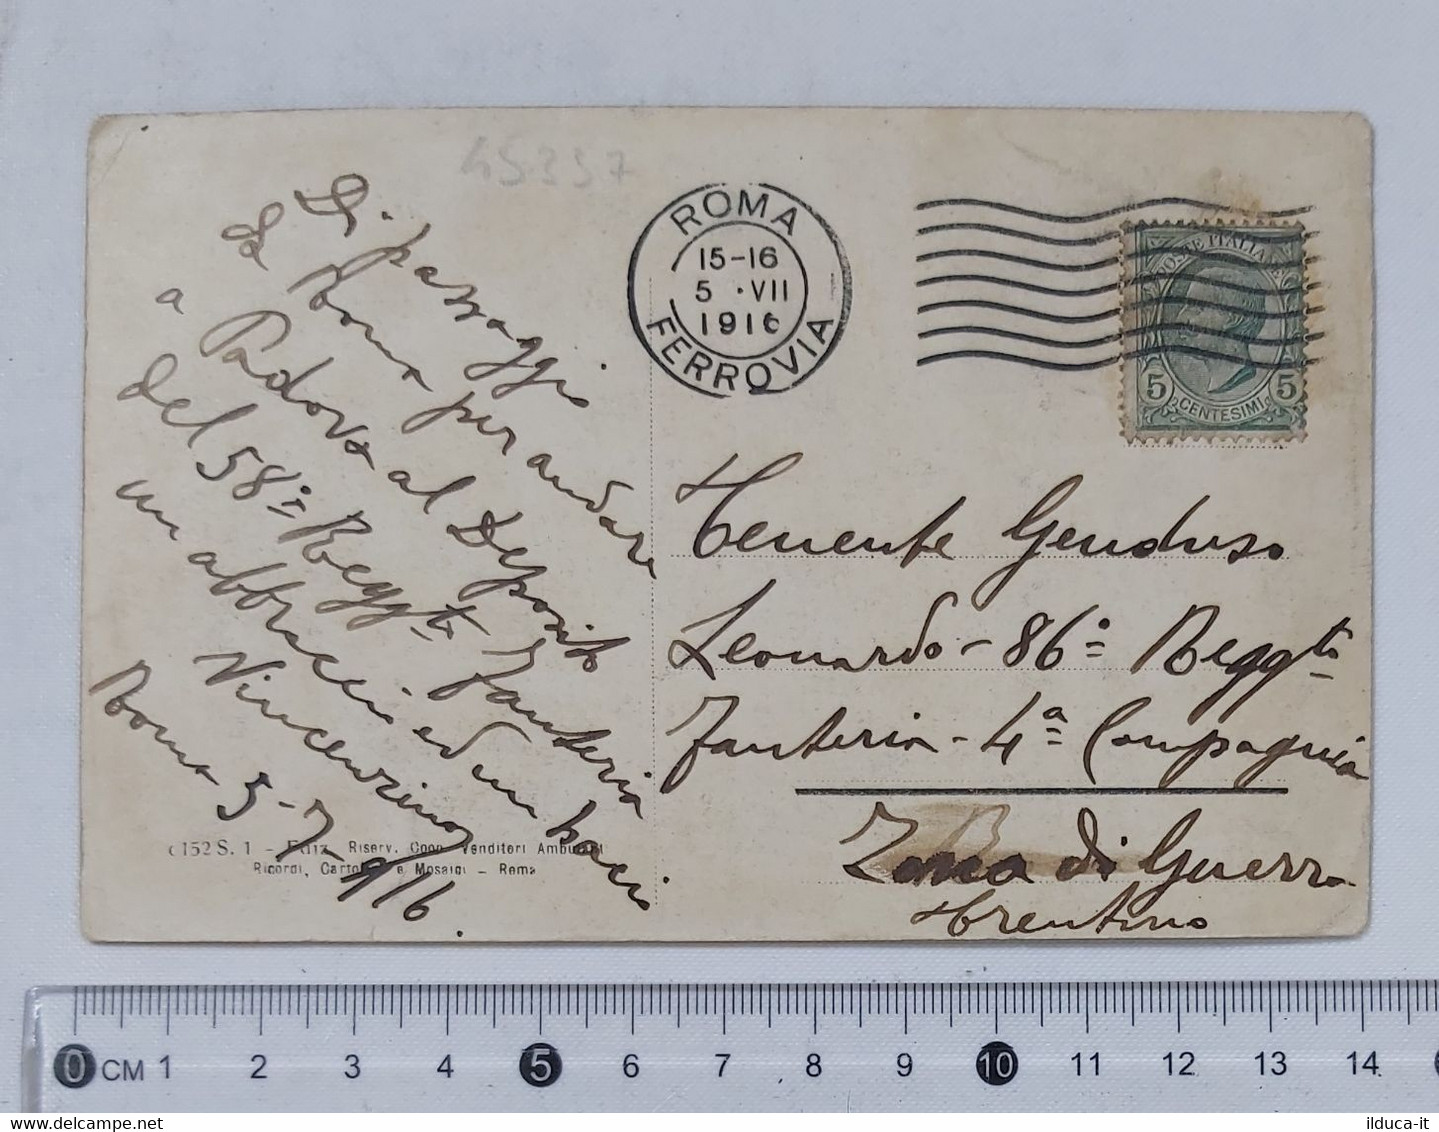 45357
Di passaggio
da Roma per andare
a Padova al Deposito
del 58º Reggto Fanteria
un abbraccio ed un bacio
Vincenzino
Roma 5-7-916.
152 S. 1 - Ediz. Riserv. Coop. Venditori Ambulanti
Ricordi, Cartoline e Mosaici - Roma
ROMA
15-16
5 · VII
1916
FERROVIA
POSTE ITALIANE
5 5
CENTESIMI
Tenente Genduso
Leonardo - 86º Reggto
Fanteria - 4ª Compagnia
Zona di Guerra
Trentino
0 CM 1 2 3 4 5 6 7 8 9 10 11 12 13 14
www.delcampe.net
ilduca-it